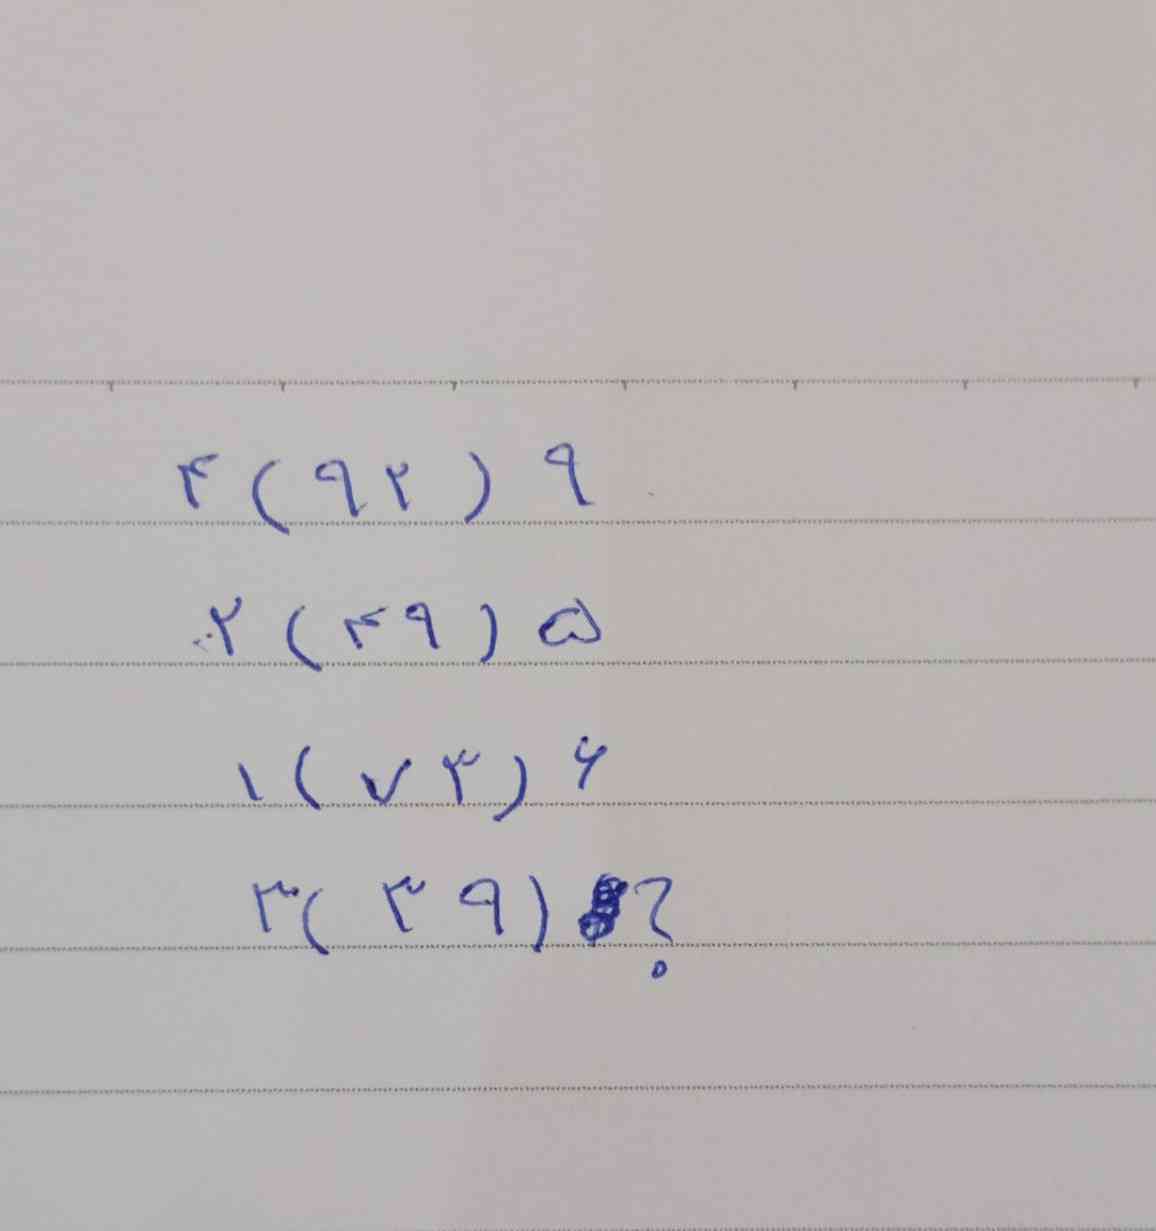 ۴ ( ۹۲ ) ۹
۲ ( ۴۹ ) ۵
۱ ( ۷۳ ) ۶
۳ ( ۳۹ ) ؟